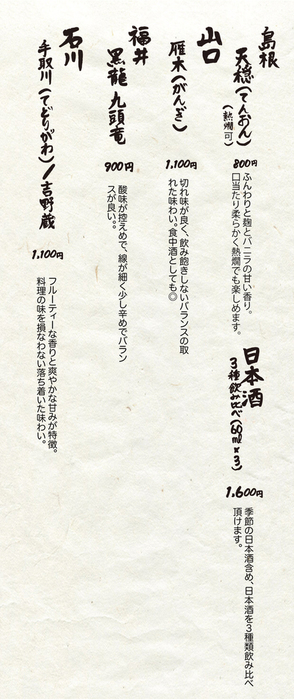 島根
天穏(てんおん)
(熱燗可)
800円
ふんわりと麹とバニラの甘い香り。
口当たり柔らかく熱燗でも楽しめます。
山口
雁木(がんぎ)
1,100円
切れ味が良く、飲み飽きしないバランスの取
れた味わい。食中酒としても◎
福井
黒龍 九頭竜
900円
酸味が控えめで、線が細く少し辛めでバラン
スが良い。。
石川
手取川(てどりがわ)/吉野蔵
1,100円
フルーティーな香りと爽やかな甘みが特徴。
料理の味を損なわない落ち着いた味わい。
日本酒
3種飲み比べ(60ml×3)
1,600円
季節の日本酒含め、日本酒を3種類飲み比べ
頂けます。